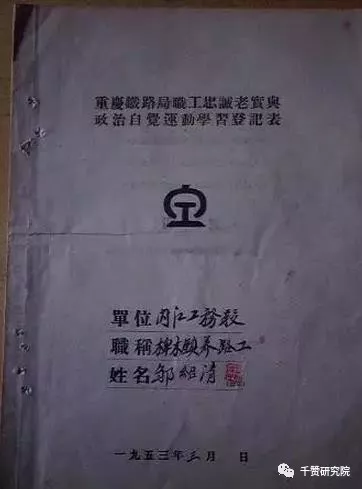 重慶鐵路局職工忠誠老實與
政治自覺運動學習登記表
單位 内江工務段
職稱 椑木鎮养路工
姓名 清
一九五三年三月 日
千赞研究院